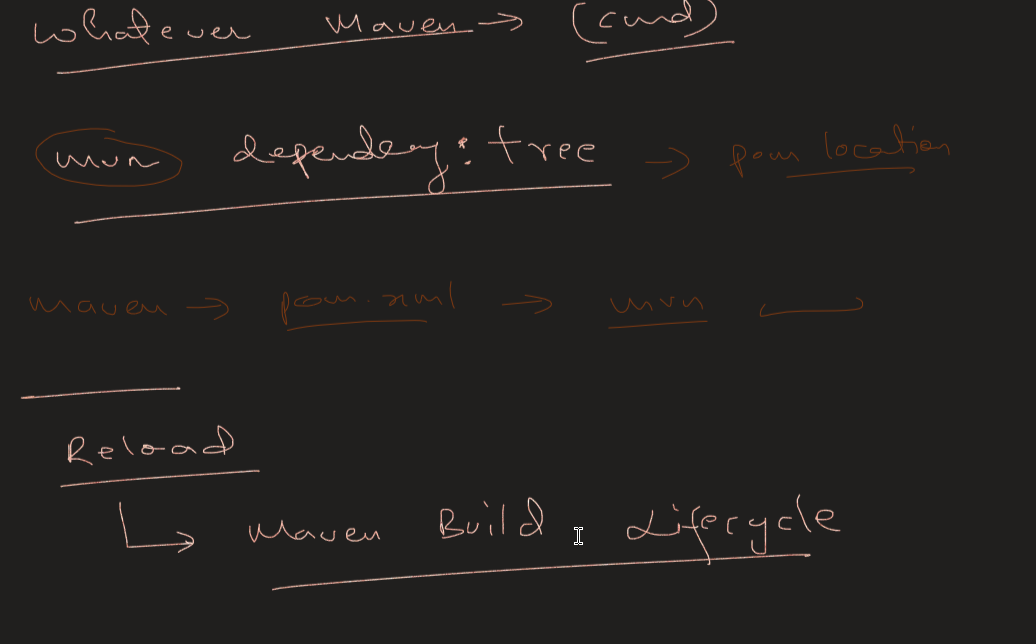 Whatever Maven → (cmd)
mvn dependency:tree → pom location
maven → pom.xml → mvn
Reload
↳ Maven Build Lifecycle